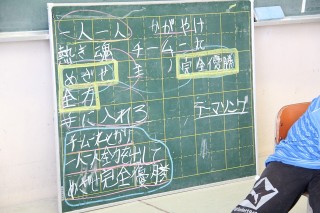 一人一人 かがやけ
熱き魂 チーム一北
めざせ 圭 完全優勝
全力
手に入れろ
テーマソング
チームでもとかり
一人一人全力を出して
めざせ!!完全優勝